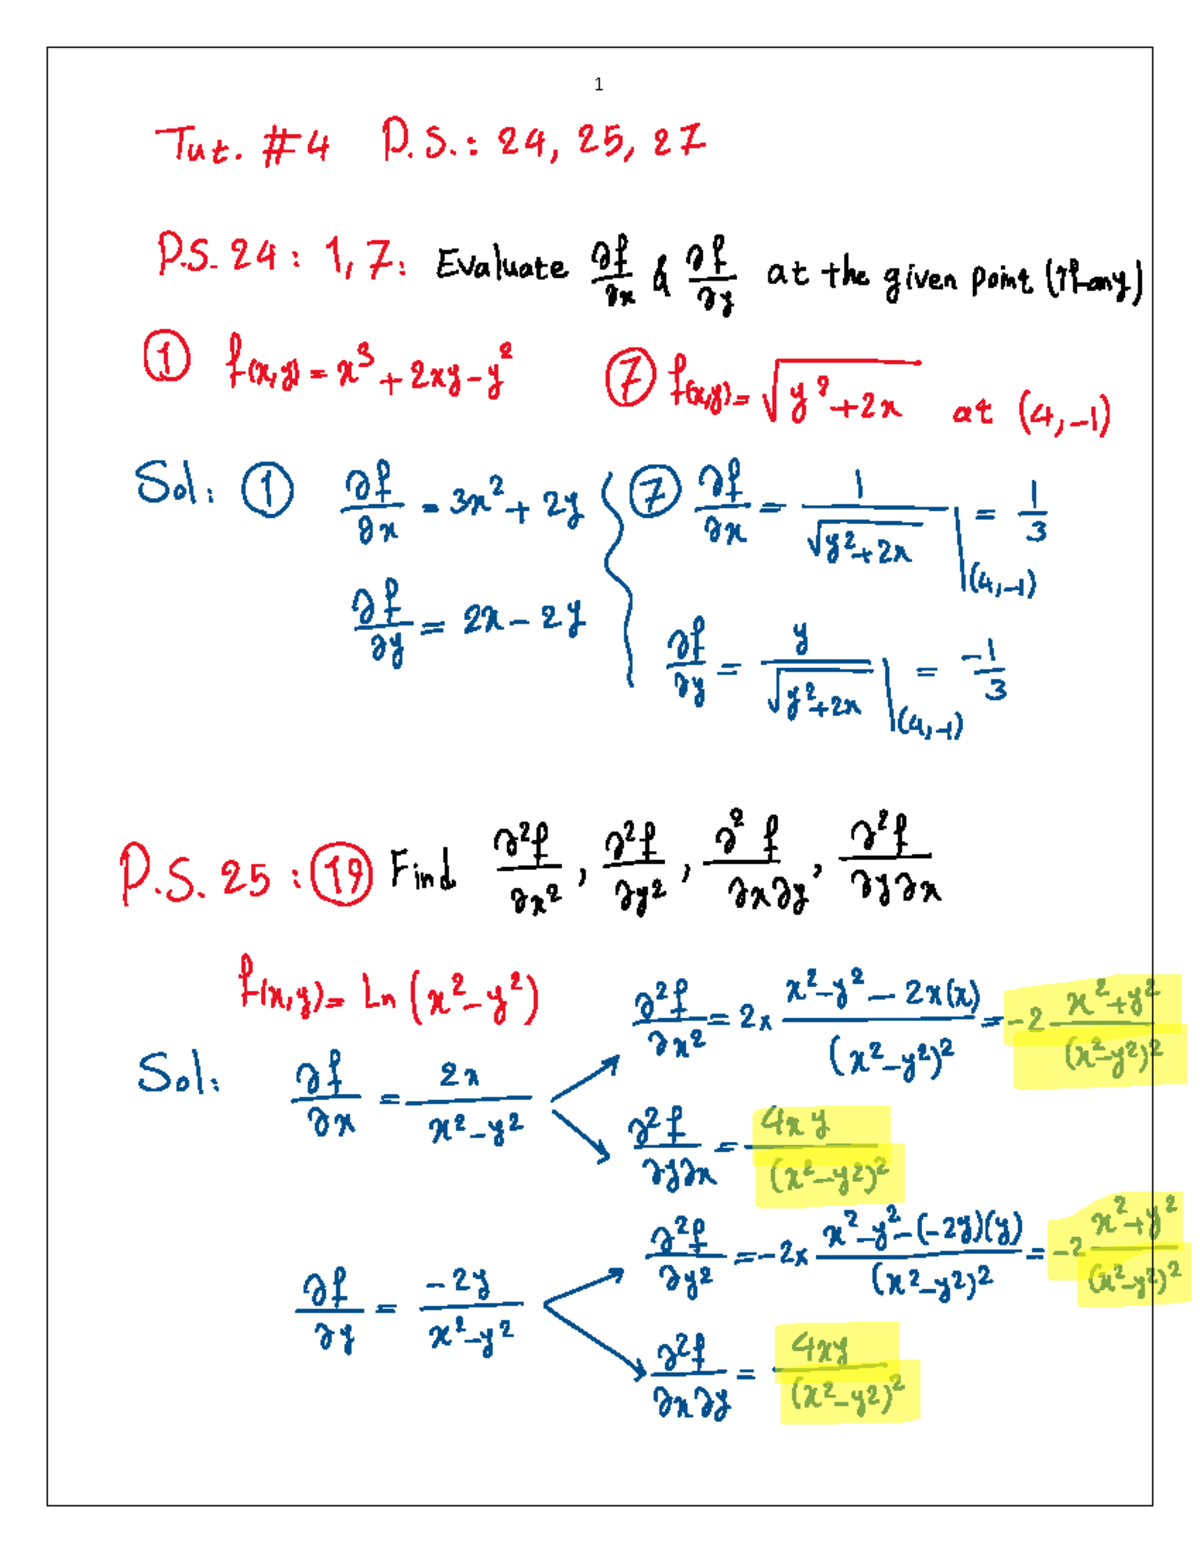 1
Tut. #4 P.S.: 24, 25, 27
P.S. 24: 1, 7: Evaluate ∂f/∂x & ∂f/∂y at the given point (if any)
① f(x,y) = x³ + 2xy - y² ⑦ f(x,y) = √(y²+2x) at (4,-1)
Sol: ① ∂f/∂x = 3x² + 2y ⑦ ∂f/∂x = 1/√(y²+2x) |(4,-1) = 1/3
∂f/∂y = 2x - 2y ∂f/∂y = y/√(y²+2x) |(4,-1) = -1/3
P.S. 25: ⑲ Find ∂²f/∂x², ∂²f/∂y², ∂²f/∂x∂y, ∂²f/∂y∂x
f(x,y) = Ln (x²-y²)
Sol: ∂f/∂x = 2x/(x²-y²)
∂²f/∂x² = 2x (x²-y²-2x(x))/(x²-y²)² = -2 (x²+y²)/(x²-y²)²
∂²f/∂y∂x = 4xy/(x²-y²)²
∂f/∂y = -2y/(x²-y²)
∂²f/∂y² = -2x (x²-y²-(-2y)(y))/(x²-y²)² = -2 (x²+y²)/(x²-y²)²
∂²f/∂x∂y = 4xy/(x²-y²)²